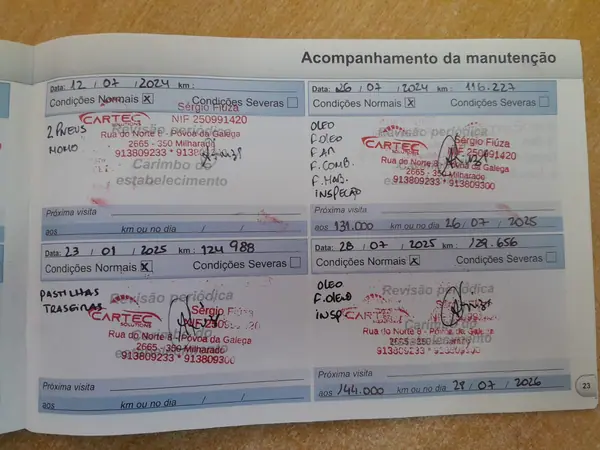 Acompanhamento da manutenção
Data: 12 / 07 / 2024 km:
Condições Normais X Condições Severas
2 PNEUS
MONO
Revisão periódica
Carimbo do
estabelecimento
CARTEC
Sérgio Fiúza
NIF 250991420
Rua do Norte 8 - Póvoa da Galega
2665 - 350 Milharado
913809233 *
Próxima visita
aos km ou no dia / /
Data: 26 / 07 / 2024 km: 116.227
Condições Normais X Condições Severas
OLEO
F. OLEO
F. AR
F. COMB.
F. HAB.
INSPEÇÃO
Revisão periódica
CARTEC
Sérgio Fiúza
NIF 250991420
Rua do Norte 8 - Póvoa da Galega
2665 - 350 Milharado
913809233 * 913809300
Próxima visita
aos 131.000 km ou no dia 26 / 07 / 2025
Data: 23 / 01 / 2025 km: 124 988
Condições Normais X Condições Severas
PASTILHAS
TRASEIRAS
Revisão periódica
CARTEC
SOLUTIONS
Sérgio Fiúza
Rua do Norte 8 - Póvoa da Galega
2665 - 350 Milharado
913809233 * 913809300
Próxima visita
aos km ou no dia / /
Data: 28 / 07 / 2025 km: 129.656
Condições Normais X Condições Severas
OLEO
F. OLEO
INSP
Revisão periódica
Carimbo do
estabelecimento
CARTEC
Rua do Norte 8 - Póvoa da Galega
Próxima visita
aos 144.000 km ou no dia 28 / 07 / 2026
23